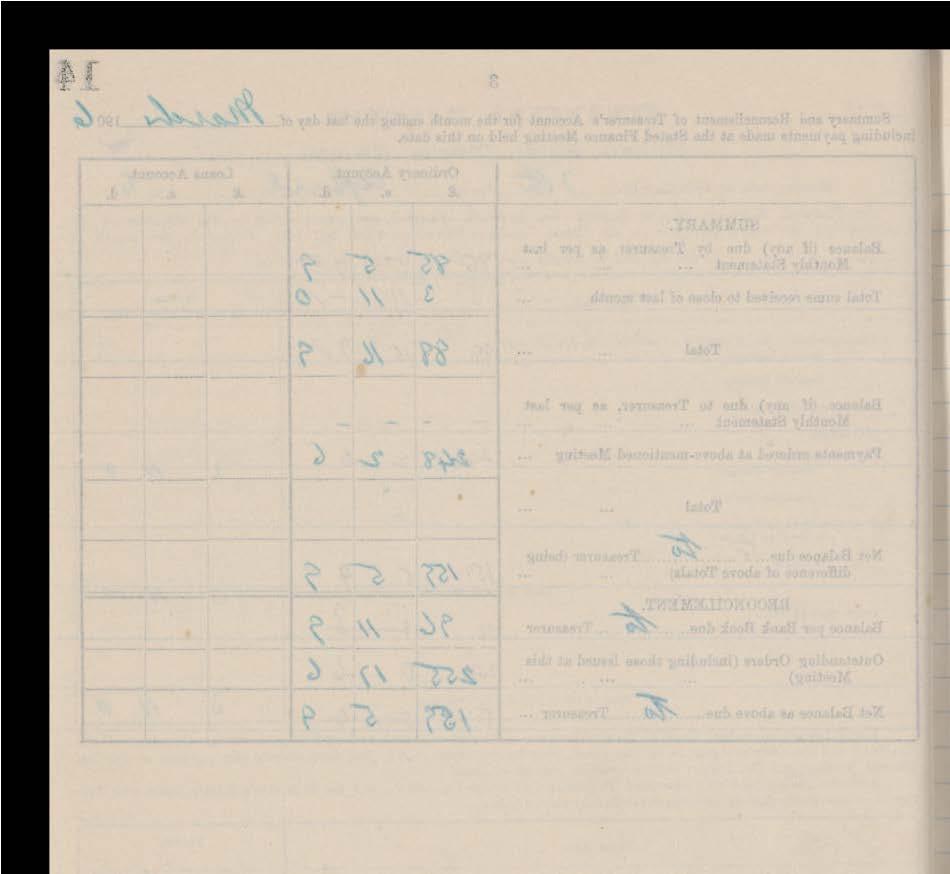 14
3
Summary and Reconcilment of Treasurer's Account for the month ending the last day of March 1906
including payments made at the Stated Finance Meeting held on this date.
Ordinary Account. Loans Account.
£ s. d. £ s. d.
SUMMARY.
Balance (if any) due by Treasurer as per last
Monthly Statement ... ... ... 85 5 9
Total sums received to close of last month ... 3 11 0
Total ... ... 88 16 9
Balance (if any) due to Treasurer, as per last
Monthly Statement ... ... ... - - -
Payments ordered at above-mentioned Meeting ... 248 2 6
Total ... ...
Net Balance due... to ...Treasurer (being
difference of above Totals) ... ... 159 5 9
RECONCILMENT.
Balance per Bank Book due... to ... Treasurer 96 11 9
Outstanding Orders (including those issued at this
Meeting) ... ... ... 255 17 6
Net Balance as above due... to ... Treasurer ... 159 5 9